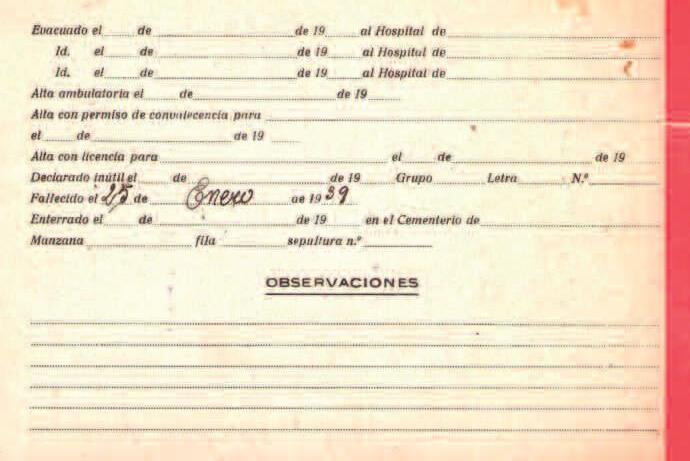 Evacuado el de de 19 al Hospital de
Id. el de de 19 al Hospital de
Id. el de de 19 al Hospital de
Alta ambulatoria el de de 19
Alta con permiso de convalecencia para
el de de 19
Alta con licencia para el de de 19
Declarado inútil el de de 19 Grupo Letra N.º
Fallecido el 25 de Enero de 1939
Enterrado el de de 19 en el Cementerio de
Manzana fila sepultura n.º
OBSERVACIONES